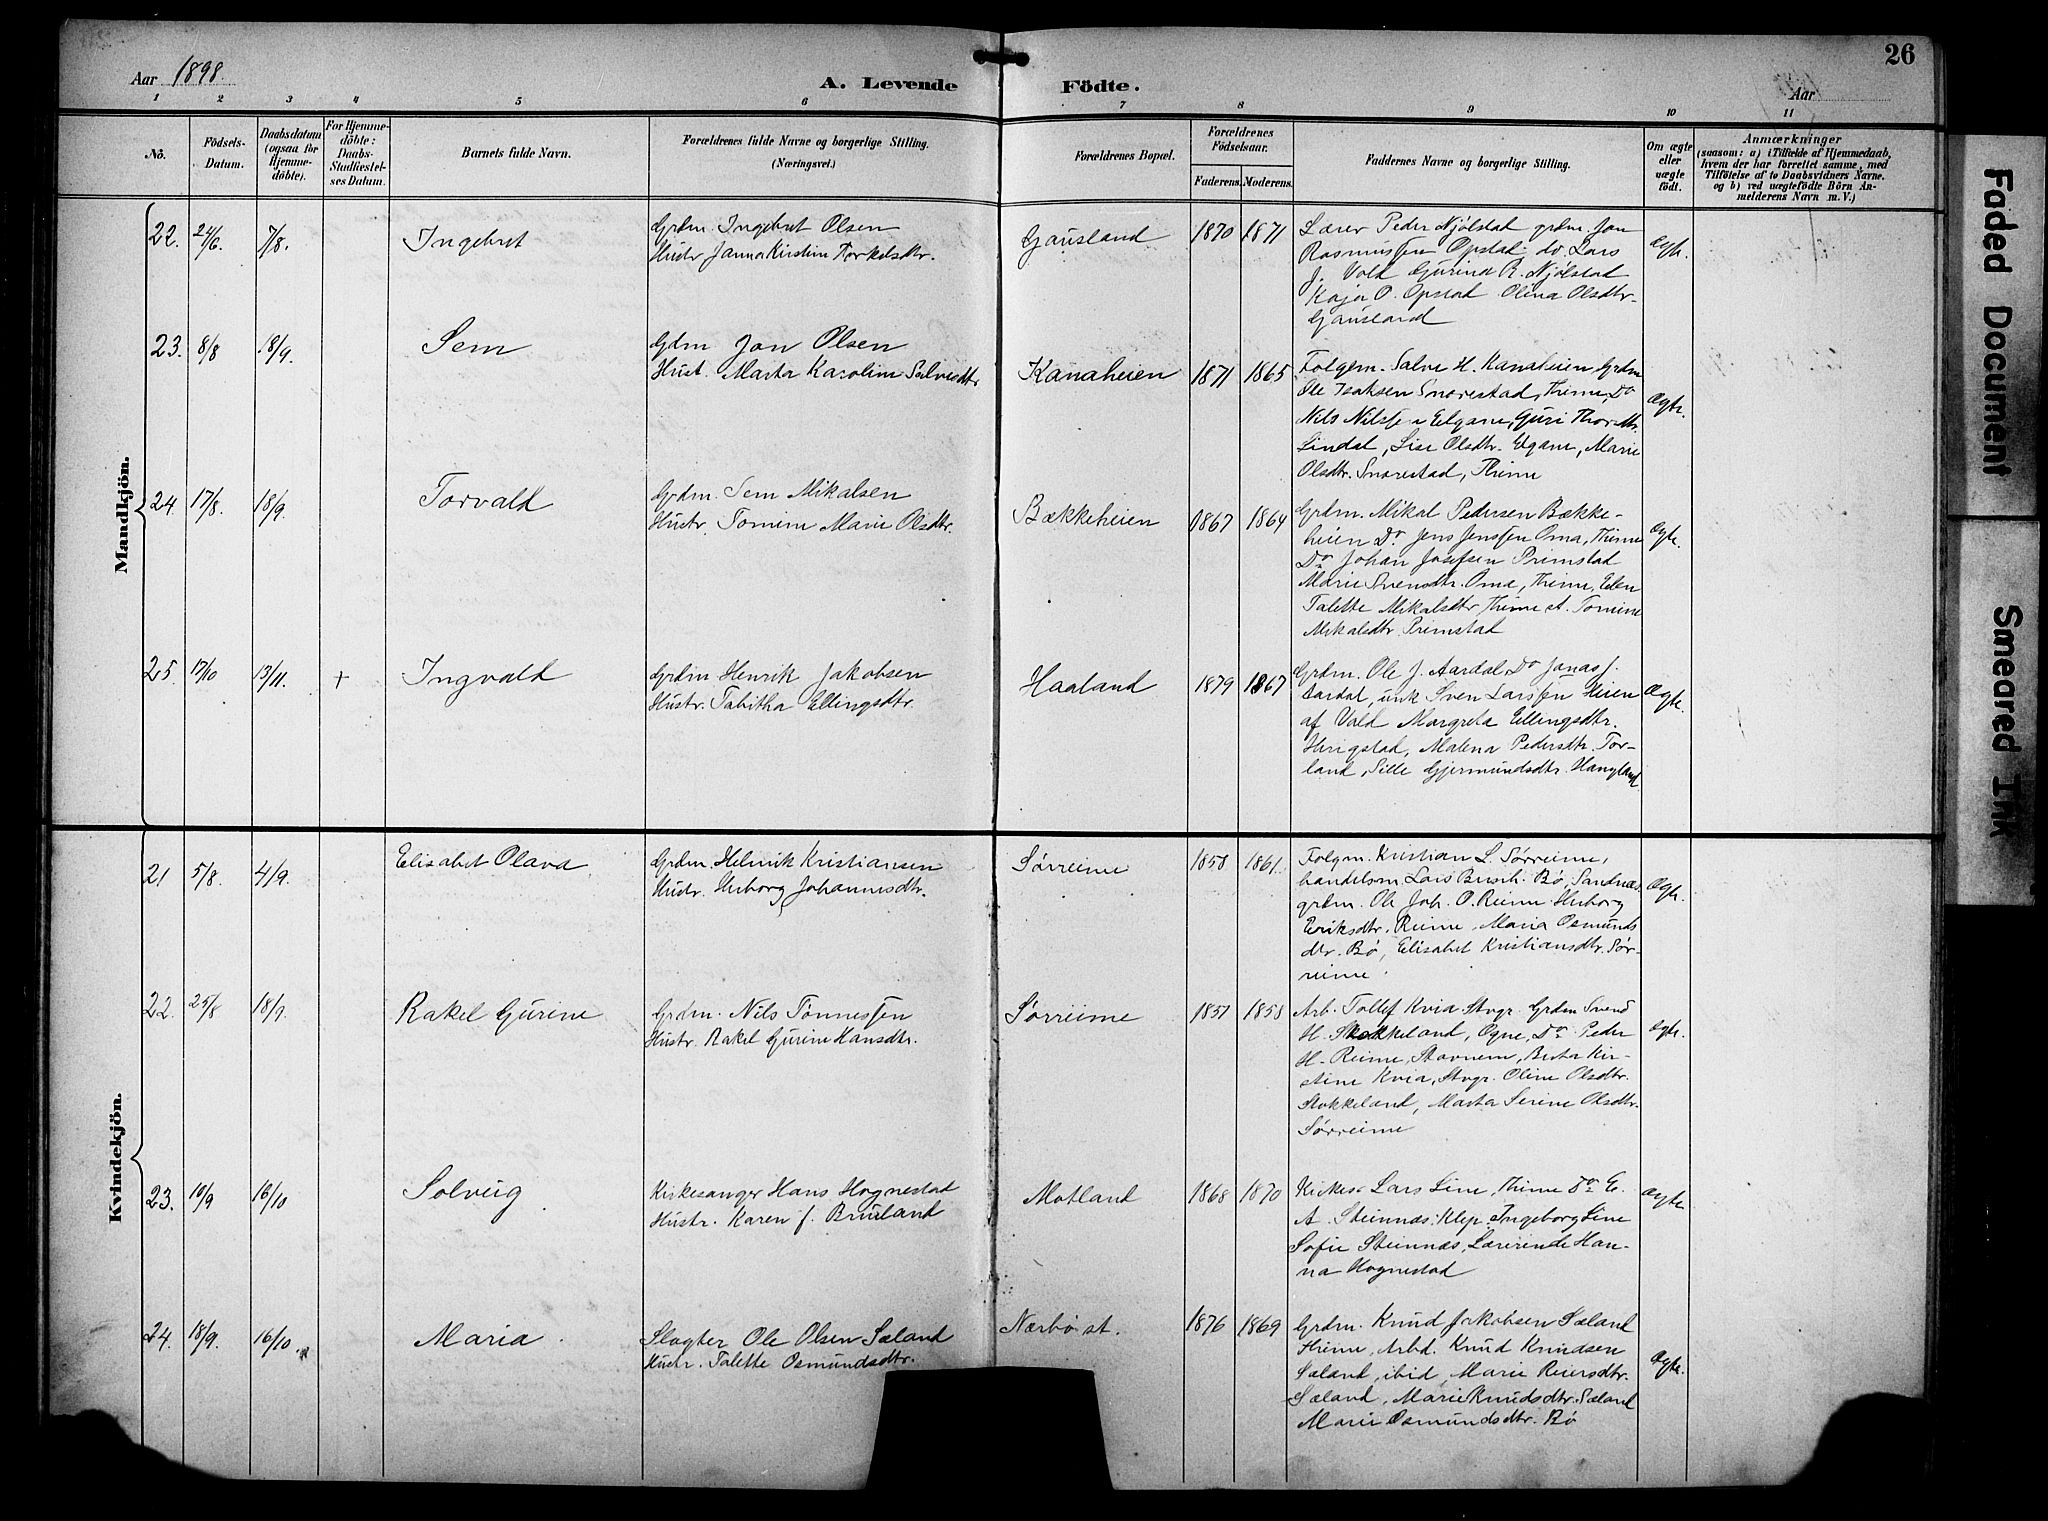 26
Aar 1898
A. Levende Födte.
Aar
1 2 3 4 5 6 7 8 9 10 11
No.
Födsels-
Datum.
Daabsdatum
(ogsaa for
Hjemme-
döbte).
For Hjemme-
döbte:
Daabs-
Stadfæstel-
ses Datum.
Barnets fulde Navn.
Forældrenes fulde Navne og borgerlige Stilling.
(Næringsvei.)
Forældrenes Bopæl.
Forældrenes
Födselsaar.
Faderens. Moderens.
Faddernes Navne og borgerlige Stilling.
Om ægte
eller
uægte
födt.
Anmærkninger
(saasom: a) i Tilfælde af Hjemmedaab,
hvem der har forrettet samme, med
Tilföielse af to Daabsvidners Navne.
og b) ved uægtefödte Börn An-
melderens Navn m. V.)
Mandkjön.
22. 24/6. 7/8. Ingebret
Grdm. Ingebret Olsen
Hustr. Janna Kirstine Torkelsdtr.
Gausland 1870 1871
Lærer Peder Njølstad grdm. Jon
Rasmussen Opstad do. Lars
J. Vold Gurine R. Njølstad
Kaja O. Opstad Olina Olsdtr.
Gausland
Ægte.
23. 8/8 18/9. Sem
Grdm Jon Olsen
Hust. Marta Karoline Salvesdtr.
Kanaheien 1871 1865
Folgm. Salve H. Kanaheien Grdm
Ole Isaksen Snorestad, Thime, Do
Nils Nilssen Elgane, Guri Thor
Lindal, Lise Olsdtr. Elgane, Marie
Olsdtr. Snorestad, Thime
Ægte.
24. 17/8. 18/9. Torvald
Grdm. Sem Mikalsen
Hustr. Tomine Marie Olsdtr.
Bækkeheien 1867 1864
Grdm. Mikal Pedersen Bække-
heien Do Jens Jenssen Oma, Thime
Do Johan Josefsen Primstad
Marie Svensdtr. Oma, Thime, Elen
Talette Mikalsdtr. Thime st. Tomine
Mikalsdtr. Primstad
Ægte.
25. 17/10 13/11. + Ingvald
Grdm Henrik Jakobsen
Hustr. Tabitha Ellingsdtr.
Haaland 1879 1867
Grdm. Ole J. Aardal Do Jonas J.
Aardal, unk Sven Larssen Heien
af Vald Margreta Ellingsdtr.
Herigstad, Malena Pedersdtr. Tor-
land, Sille Gjermundsdtr. Haugland
Ægte.
Kvindekjön.
21 5/8. 4/9. Elisabet Olava
Grdm. Helmik Kristiansen
Hustr. Herborg Johannesdtr.
Sørreime 1858 1861.
Folgm. Kristian L. Sørreime,
handelsm. Lars Bø, Sandnæs.
grdm. Ole Joh. O. Reime Herborg
Eriksdtr. Reime, Maria Osmunds
dtr. Bø, Elisabet Kristiansdtr. Sør-
reime.
Ægte.
22. 25/8 18/9. Rakel Gurine
Grdm. Nils Tønnessen
Hustr. Rakel Gurine Hansdtr.
Sørreime 1851 1858
Arb. Tollef Kvia Stvgr. Grdm Svend
H. Stokkeland, Ogne, Do Peder
H. Reime, Stavnem, Berta Kir-
stine Kvia, Stvgr. Oline Olsdtr.
Stokkeland, Marta Serine Olsdtr.
Sørreime
Ægte.
23. 10/9 16/10 Solveig
Kirkesanger Hans Hognestad
Hustr. Karen J. Bruland
Motland 1868 1870
Kirkes. Lars Line, Thime Do E.
A. Steinnæs. Klep, Ingeborg Line
Sofie Steinnæs, Lærerinde Han-
na Hognestad
Ægte
24. 18/9. 16/10. Maria
Slagter Ole Olsen Sæland
Hustr. Talette Osmundsdtr.
Nærbø st. 1876 1869
Grdm. Knud Jakobsen Sæland
Thime, Arbd. Knud Knudsen
Sæland, ibid, Marie Reiersdtr.
Sæland, Marie Knudsdtr. Sæland
Marie Osmundsdtr. Bø
Ægte.
Faded Document
Smeared Ink